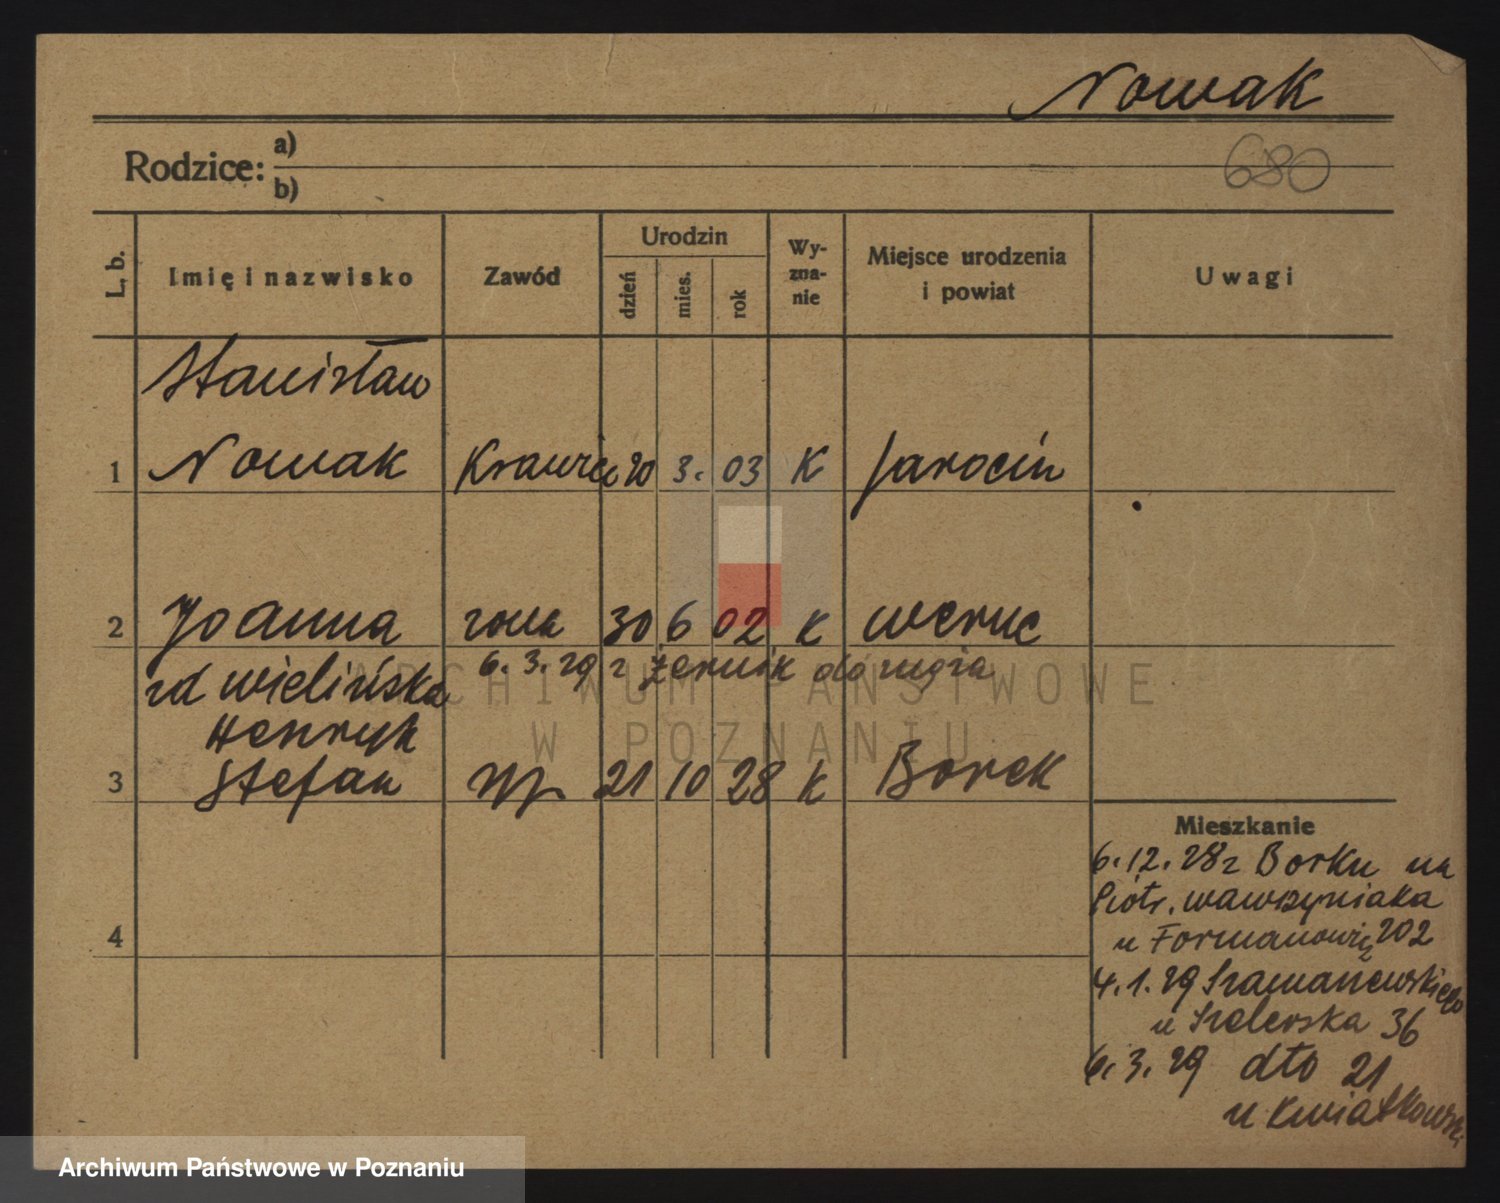 Nowak
680
Rodzice: a)
b)
L. b.
Imię i nazwisko
Zawód
Urodzin
dzień
mies.
rok
Wy-
zna-
nie
Miejsce urodzenia
i powiat
Uwagi
Stanisław
1 Nowak Krawiec 20 3. 03 K Jarocin
2 Joanna żona 30 6 02 K
6. 3. 29 z Żernik do męża
zd Wielińska
Henryk
3 Stefan 21 10 28 K Borek
4
Mieszkanie
6. 12. 28 z Borku na
Piotr. Wawrzyniaka
u 202
4. 1. 29 Szamarzewskiego
u 36
6. 3. 29 dto 21
u Kwiatkowski
ARCHIWUM PAŃSTWOWE
W POZNANIU
Archiwum Państwowe w Poznaniu